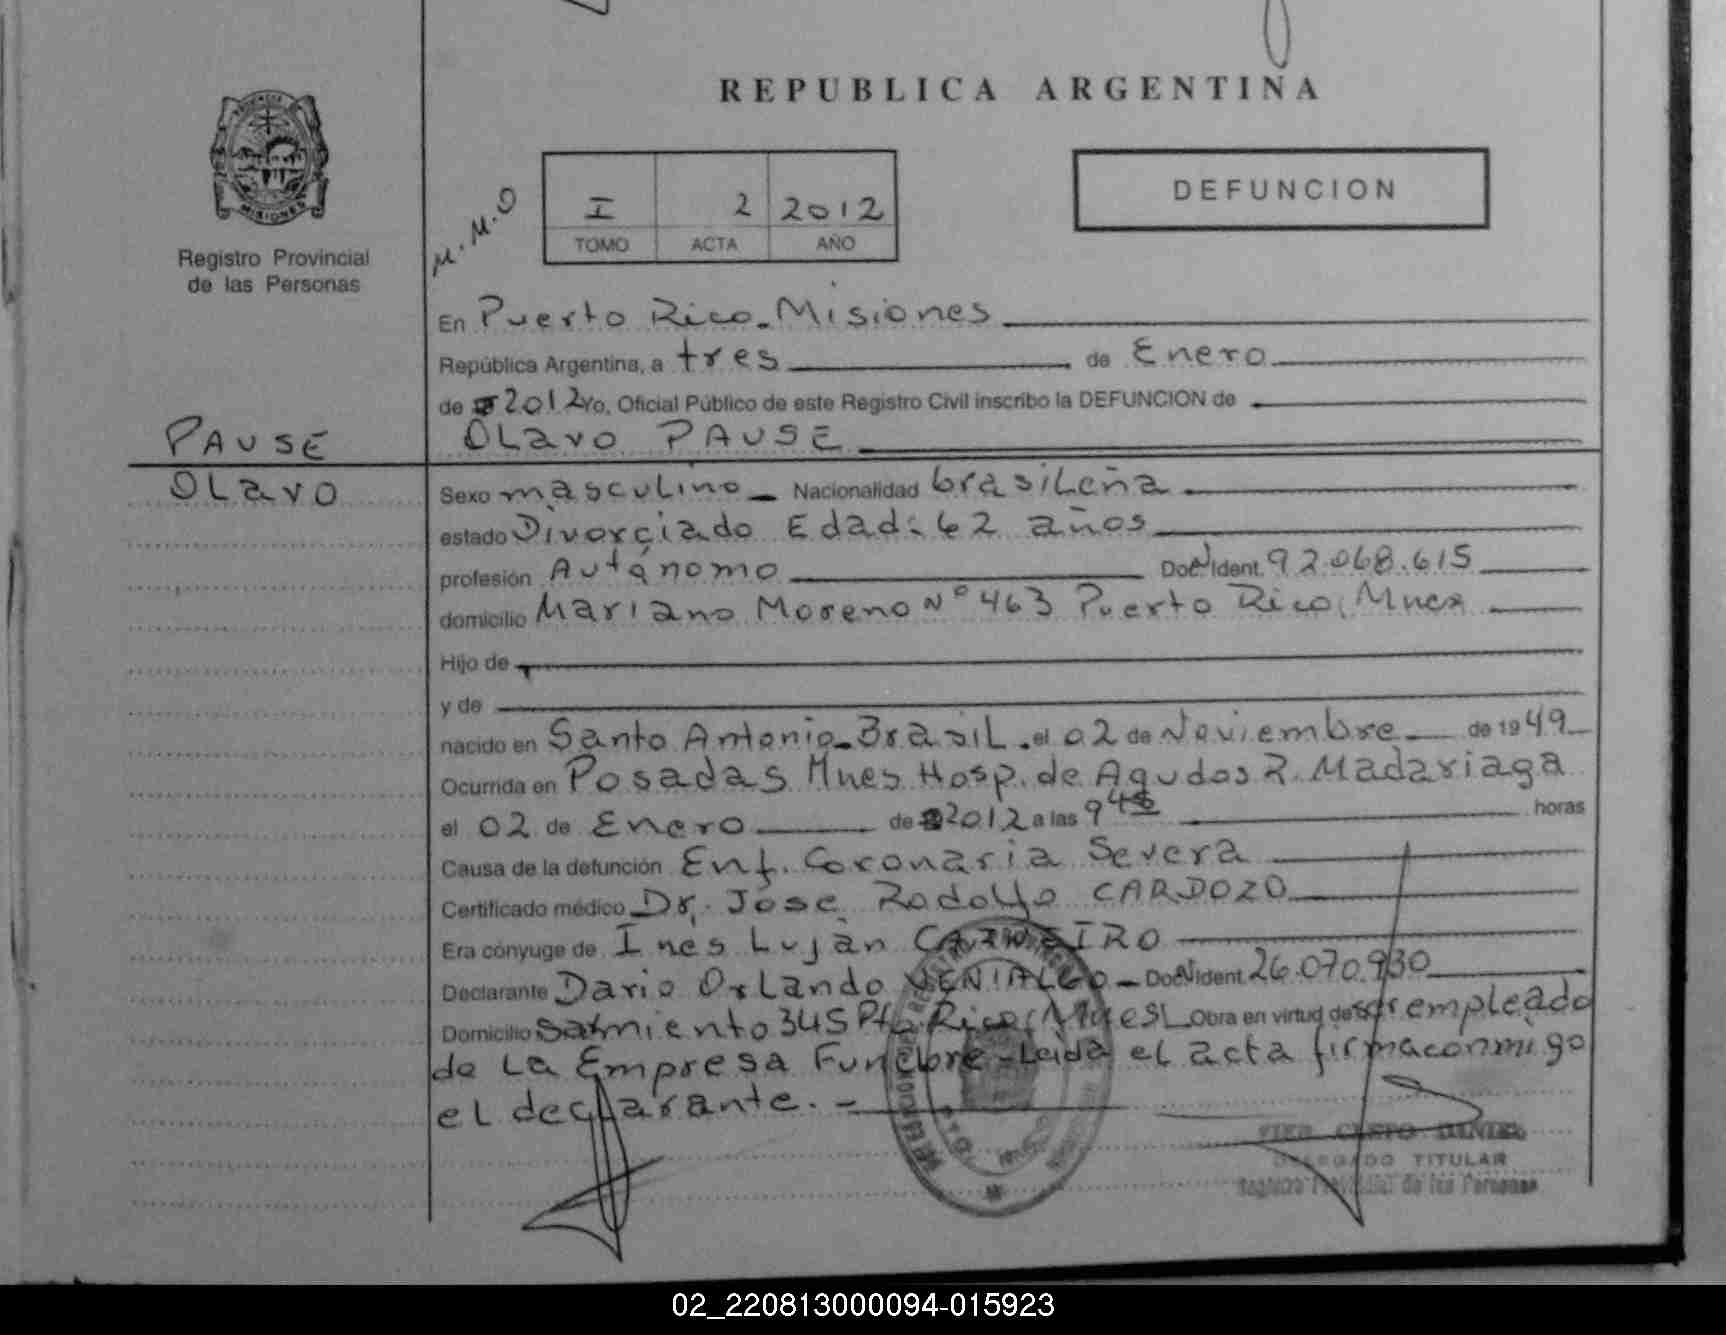 REPUBLICA ARGENTINA
PROVINCIA DE MISIONES
Registro Provincial
de las Personas
M.M.O
I 2 2012
TOMO ACTA AÑO
DEFUNCION
En Puerto Rico - Misiones
República Argentina, a tres de Enero
de 2012 Yo, Oficial Público de este Registro Civil inscribo la DEFUNCION de
PAUSE
OLavo PAUSE
OLavo
Sexo masculino - Nacionalidad brasileña
estado Divorciado Edad: 62 años
profesión Autónomo Doc Nº Ident. 92.068.615
domicilio Mariano Moreno Nº 463 Puerto Rico, Mnes
Hijo de
y de
nacido en Santo Antonio - Brasil. el 02 de Noviembre de 1949
Ocurrida en Posadas Mnes Hosp. de Agudos R. Madariaga
el 02 de Enero de 2012 a las 9 horas
Causa de la defunción Enf. Coronaria Severa
Certificado médico Dr. José Rodolfo CARDOZO
Era cónyuge de Inés Luján CARNEIRO
Declarante Dario Orlando VENIALGO - Doc Nº Ident. 26.070.930
Domicilio Sarmiento 345 Pto. Rico, Mnes. Obra en virtud de ser empleado
de La Empresa Funebre - Leida el acta firma conmigo
el declarante. -
VIER CLETO DANIEL
DELEGADO TITULAR
Registro Provincial de las Personas
02_220813000094-015923